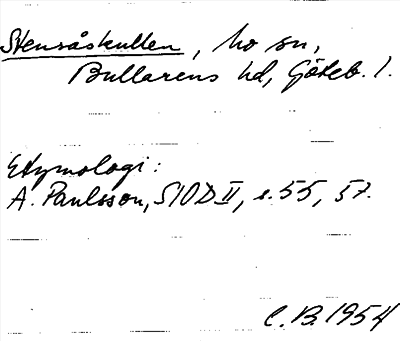 Stensåskullen, Mo sn,
Bullarens hd, Göteb. l.
Etymologi:
A. Paulsson, SIOD II, s. 55, 57.
C. B. 1954